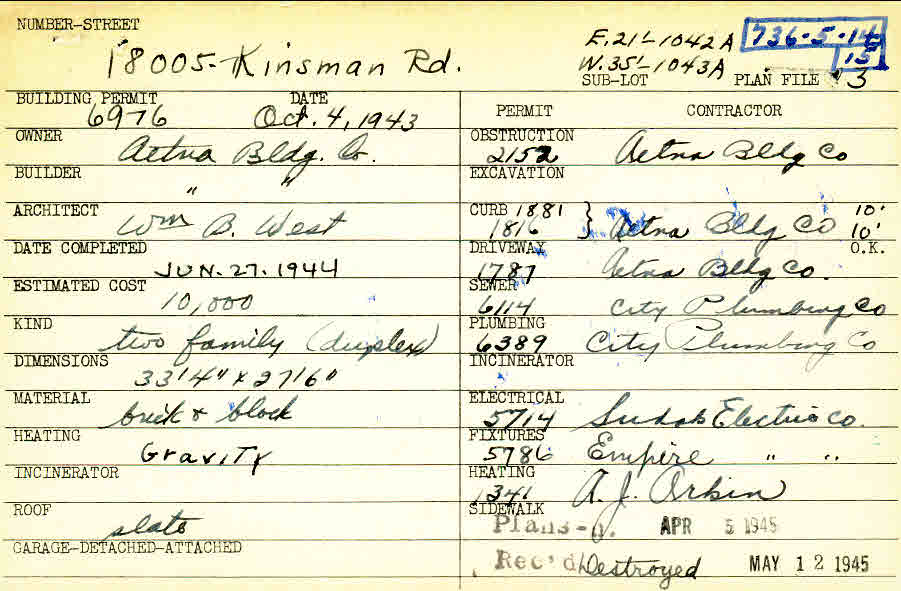 NUMBER-STREET
18005 - Kinsman Rd.
E. 21' - 1042A
W. 35' - 1043A
736-5-14
15
SUB-LOT PLAN FILE 3
BUILDING PERMIT DATE
6976 Oct. 4, 1943
OWNER
Aetna Bldg. Co.
BUILDER
" "
ARCHITECT
Wm B. West
DATE COMPLETED
JUN. 27. 1944
ESTIMATED COST
10,000
KIND
two family (duplex)
DIMENSIONS
33'4" x 27'6"
MATERIAL
brick & block
HEATING
Gravity
INCINERATOR
ROOF
slate
GARAGE-DETACHED-ATTACHED
PERMIT CONTRACTOR
OBSTRUCTION
2152 Aetna Bldg Co
EXCAVATION
CURB 1881 10'
1816 } Aetna Bldg Co 10'
DRIVEWAY O.K.
1787 Aetna Bldg Co.
SEWER
6114 City Plumbing Co
PLUMBING
6389 City Plumbing Co
INCINERATOR
ELECTRICAL
5714 Electric Co.
FIXTURES
5786 Empire " "
HEATING
1341 A. J. Orkin
SIDEWALK
Plans- APR 5 1945
Rec'd Destroyed MAY 12 1945